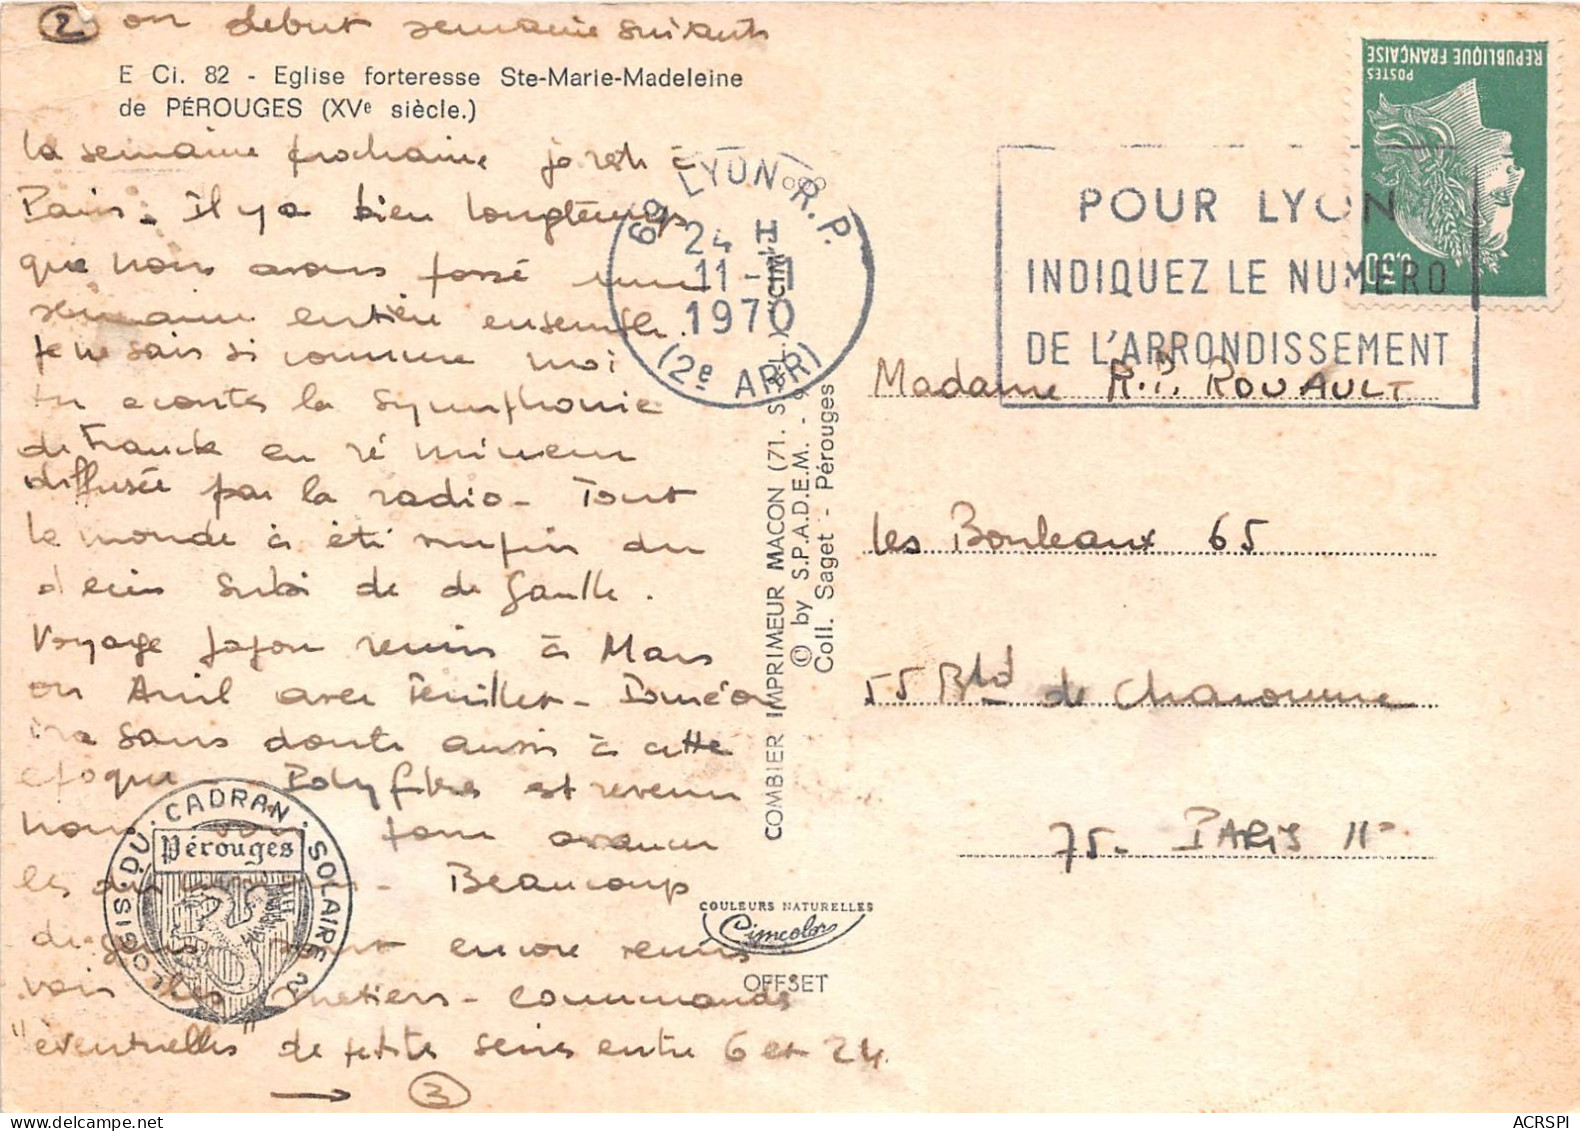 ② ou début semaine suivante
E Ci. 82 - Eglise forteresse Ste-Marie-Madeleine
de PÉROUGES (XVe siècle.)
la semaine prochaine je reste à
Paris - Il y a bien longtemps
que nous avons passé une
semaine entière ensemble.
Je ne sais si comme moi
tu écoutes la symphonie
de Franck en ré mineur
diffusée par la radio - Tout
le monde a été surpris du
décès subi de de Gaulle.
Voyage Japon remis à Mars
ou Avril avec Teniller -
ira sans doute aussi à cette
époque Polyfibres est revenu
nous pour avancer
les - Beaucoup
de gens sont encore venus
voir les métiers - commandes
"éventuelles" de petites séries entre 6 et 24.
→ ③
69 LYON R.P.
24 H
11 - 11
1970
(2e ARR)
POUR LYON
INDIQUEZ LE NUMERO
DE L'ARRONDISSEMENT
REPUBLIQUE FRANÇAISE
POSTES
0,30
COMBIER IMPRIMEUR MACON (71. S.-L.) CIM
© by S.P.A.D.E.M. -
Coll. Saget - Pérouges
Madame R.P. ROUAULT
les Bouleaux 65
55 Bld de Charonne
75 - PARIS 11°
LOGIS DU · CADRAN · SOLAIRE
Pérouges
COULEURS NATURELLES
Cimcolor
OFFSET
ACRSPI